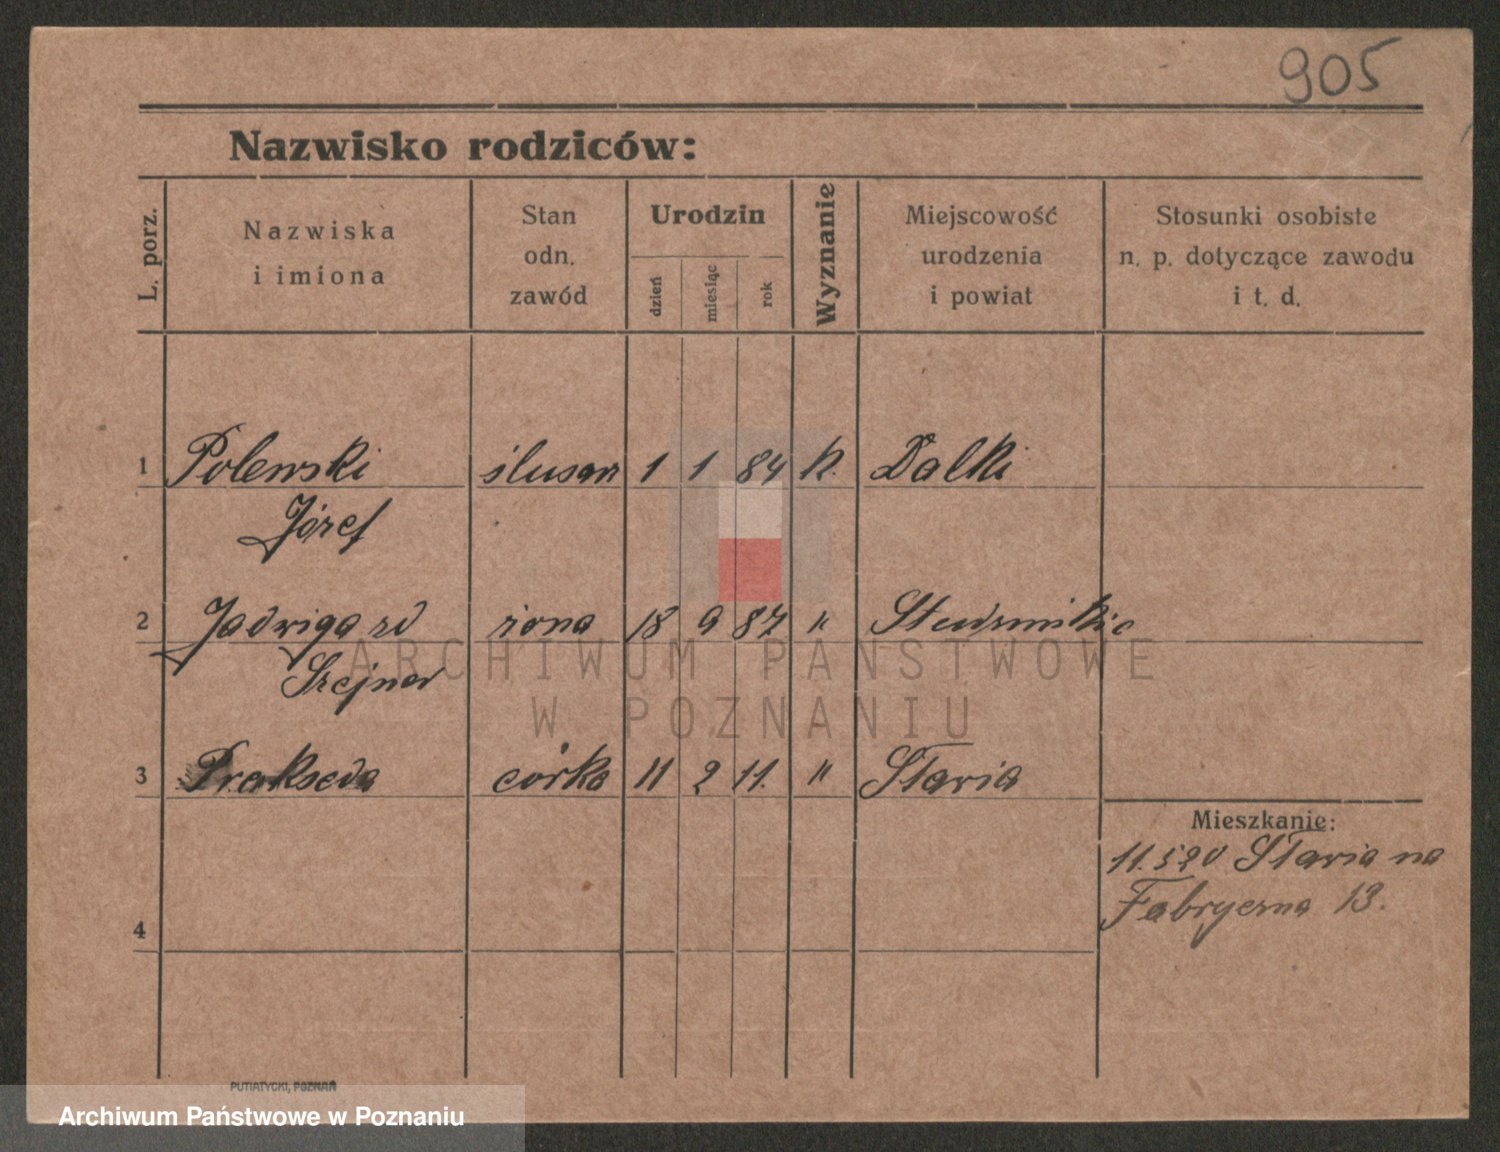 905
Nazwisko rodziców:
L. porz.
Nazwiska
i imiona
Stan
odn.
zawód
Urodzin
dzień
miesiąc
rok
Wyznanie
Miejscowość
urodzenia
i powiat
Stosunki osobiste
n. p. dotyczące zawodu
i t. d.
1 Polewski ślusarz 1 1 84 k. Dalki
Józef
2 Jadwiga zd żona 18 9 87 "
Szejner
3 Prakseda córka 11 2 11. " Staria
Mieszkanie:
11.5 20 Staria na
Fabryczna 13.
4
PUTIATYCKI, POZNAŃ
ARCHIWUM PAŃSTWOWE
W POZNANIU
Archiwum Państwowe w Poznaniu